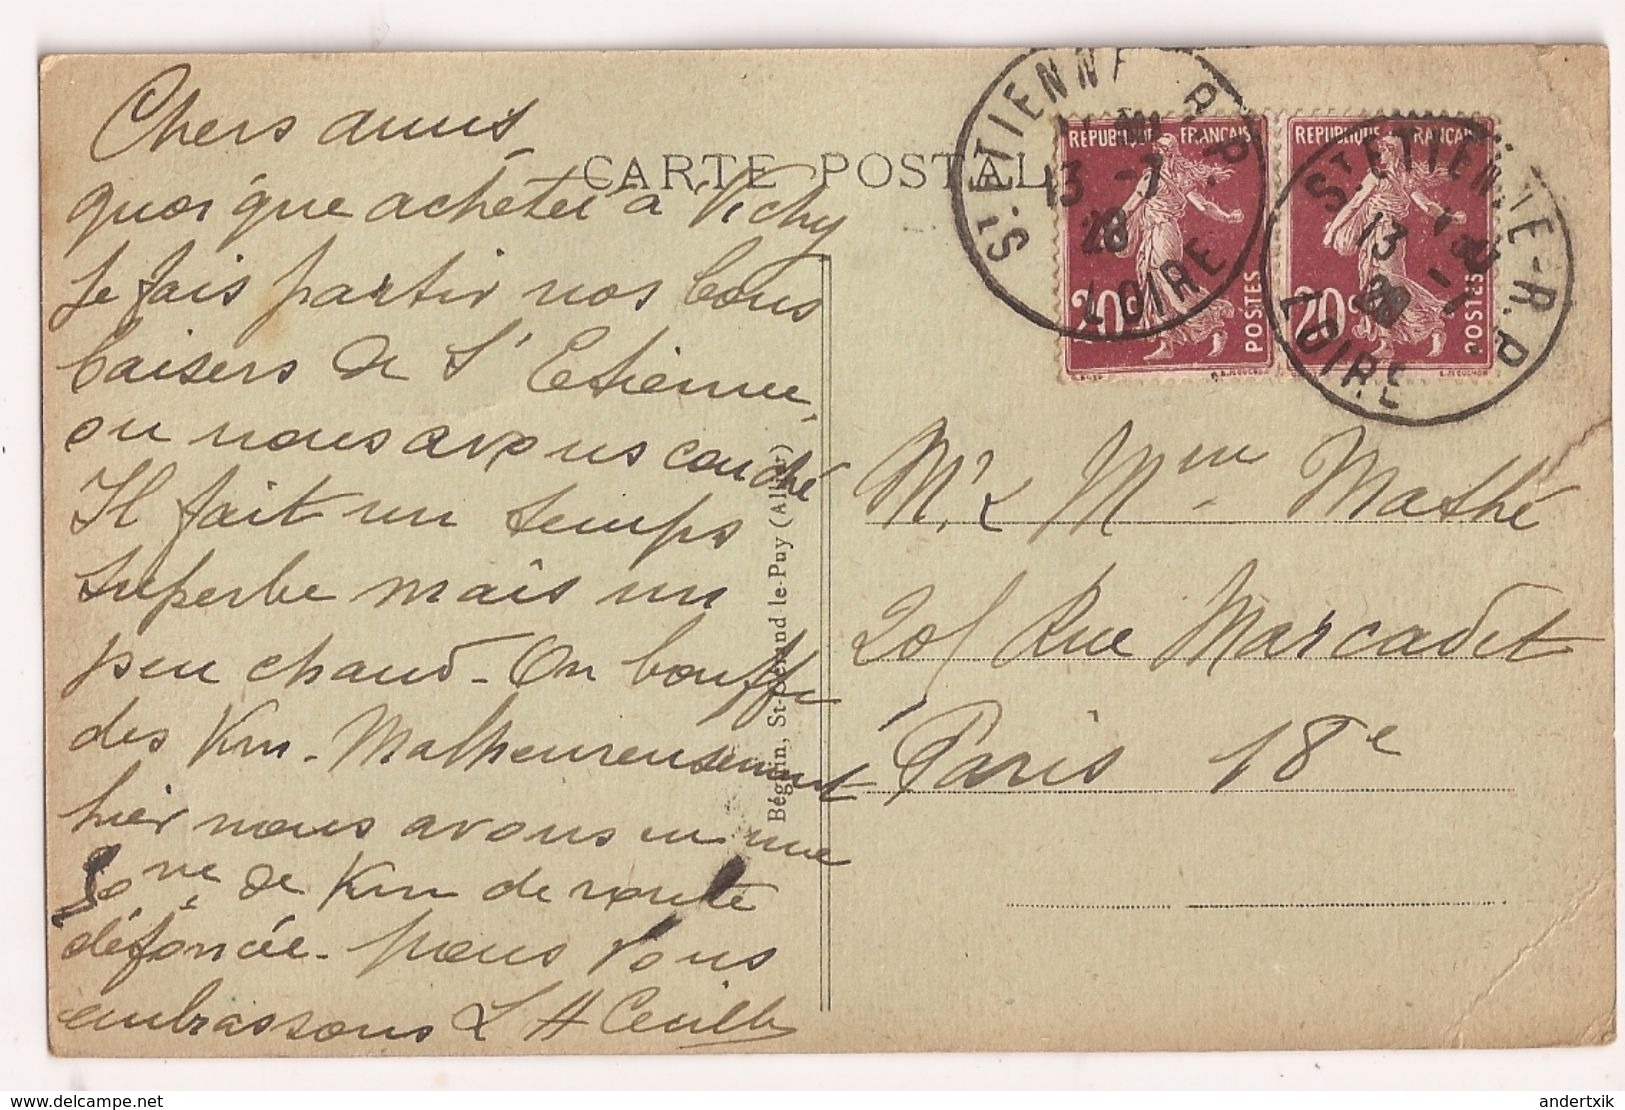 Chers amis,
quoi que achetée à Vichy
Je fais partir nos bons
baisers de St Etienne,
ou nous avons couché
Il fait un temps
superbe mais un
peu chaud - On bouffe
des Km. Malheureusement
hier nous avons eu une
de Km de route
défoncée - Nous vous
embrassons
CARTE POSTALE
Béguin, St-Gérand le-Puy (Allier)
ST. ETIENNE R.P.
13 -7
28
LOIRE
REPUBLIQUE FRANÇAISE
20c POSTES
ST ETIENNE-R.P.
13 -7
28
LOIRE
REPUBLIQUE FRANÇAISE
20c POSTES
Mr & Mme Mathé
201 Rue Marcadet
Paris 18e
www.delcampe.net
andertxik